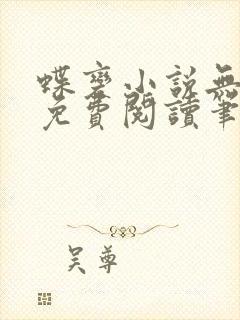 蝶變小說無
免費閱讀筆
吴尊